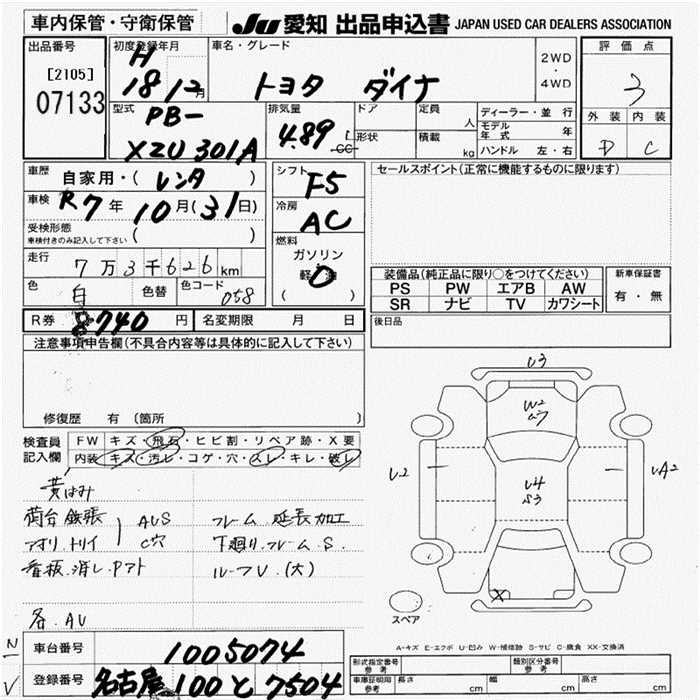 車内保管・守衛保管 JU 愛知 出品申込書 JAPAN USED CAR DEALERS ASSOCIATION
出品番号 [2105] 07133
初度登録年月 H 18 12月
車名・グレード トヨタ ダイナ
2WD・4WD
評価点 3
外装 内装
D C
型式 PB- XZU301A
排気量 4.89 L CC
ドア 定員 人
形状 積載 kg
ディーラー・並行
モデル年式 年
ハンドル 左・右
車歴 自家用・(レンタ)
車検 R7年10月(31日)
受検形態
車検付きのみ記入して下さい ( )
走行 7万3千626km
色 白 色替 色コード 058
シフト F5
冷房 AC
燃料 ガソリン 軽油
( )
セールスポイント(正常に機能するものに限ります)
装備品(純正品に限り○をつけてください)
PS PW エアB AW
SR ナビ TV カワシート
新車保証書
有・無
R券 8740円 名変期限 月 日
後日品
注意事項申告欄(不具合内容等は具体的に記入して下さい)
修復歴 有 (箇所 )
検査員記入欄
FW キズ・飛石・ヒビ割・リペア跡・X要
内装 キズ・汚レ・コゲ・穴・スレ・キレ・破レ
黄ばみ
荷台鉄張 AUS フレーム延長加工
アオリ.トリイ C穴 下廻り.フレーム S.
看板.消し.Pアト ルーフU.(大)
各.AU
U3
W2
U2
U4
S3
UA2
X
スペア
A-キズ E-エクボ U-凹み W-補修跡 S-サビ C-腐食 XX-交換済
車台番号 1005074
登録番号 名古屋 100 と 7504
形式指定番号 参考 類別区分番号 参考
車庫証明用 参考 長さ cm 幅 cm 高さ cm